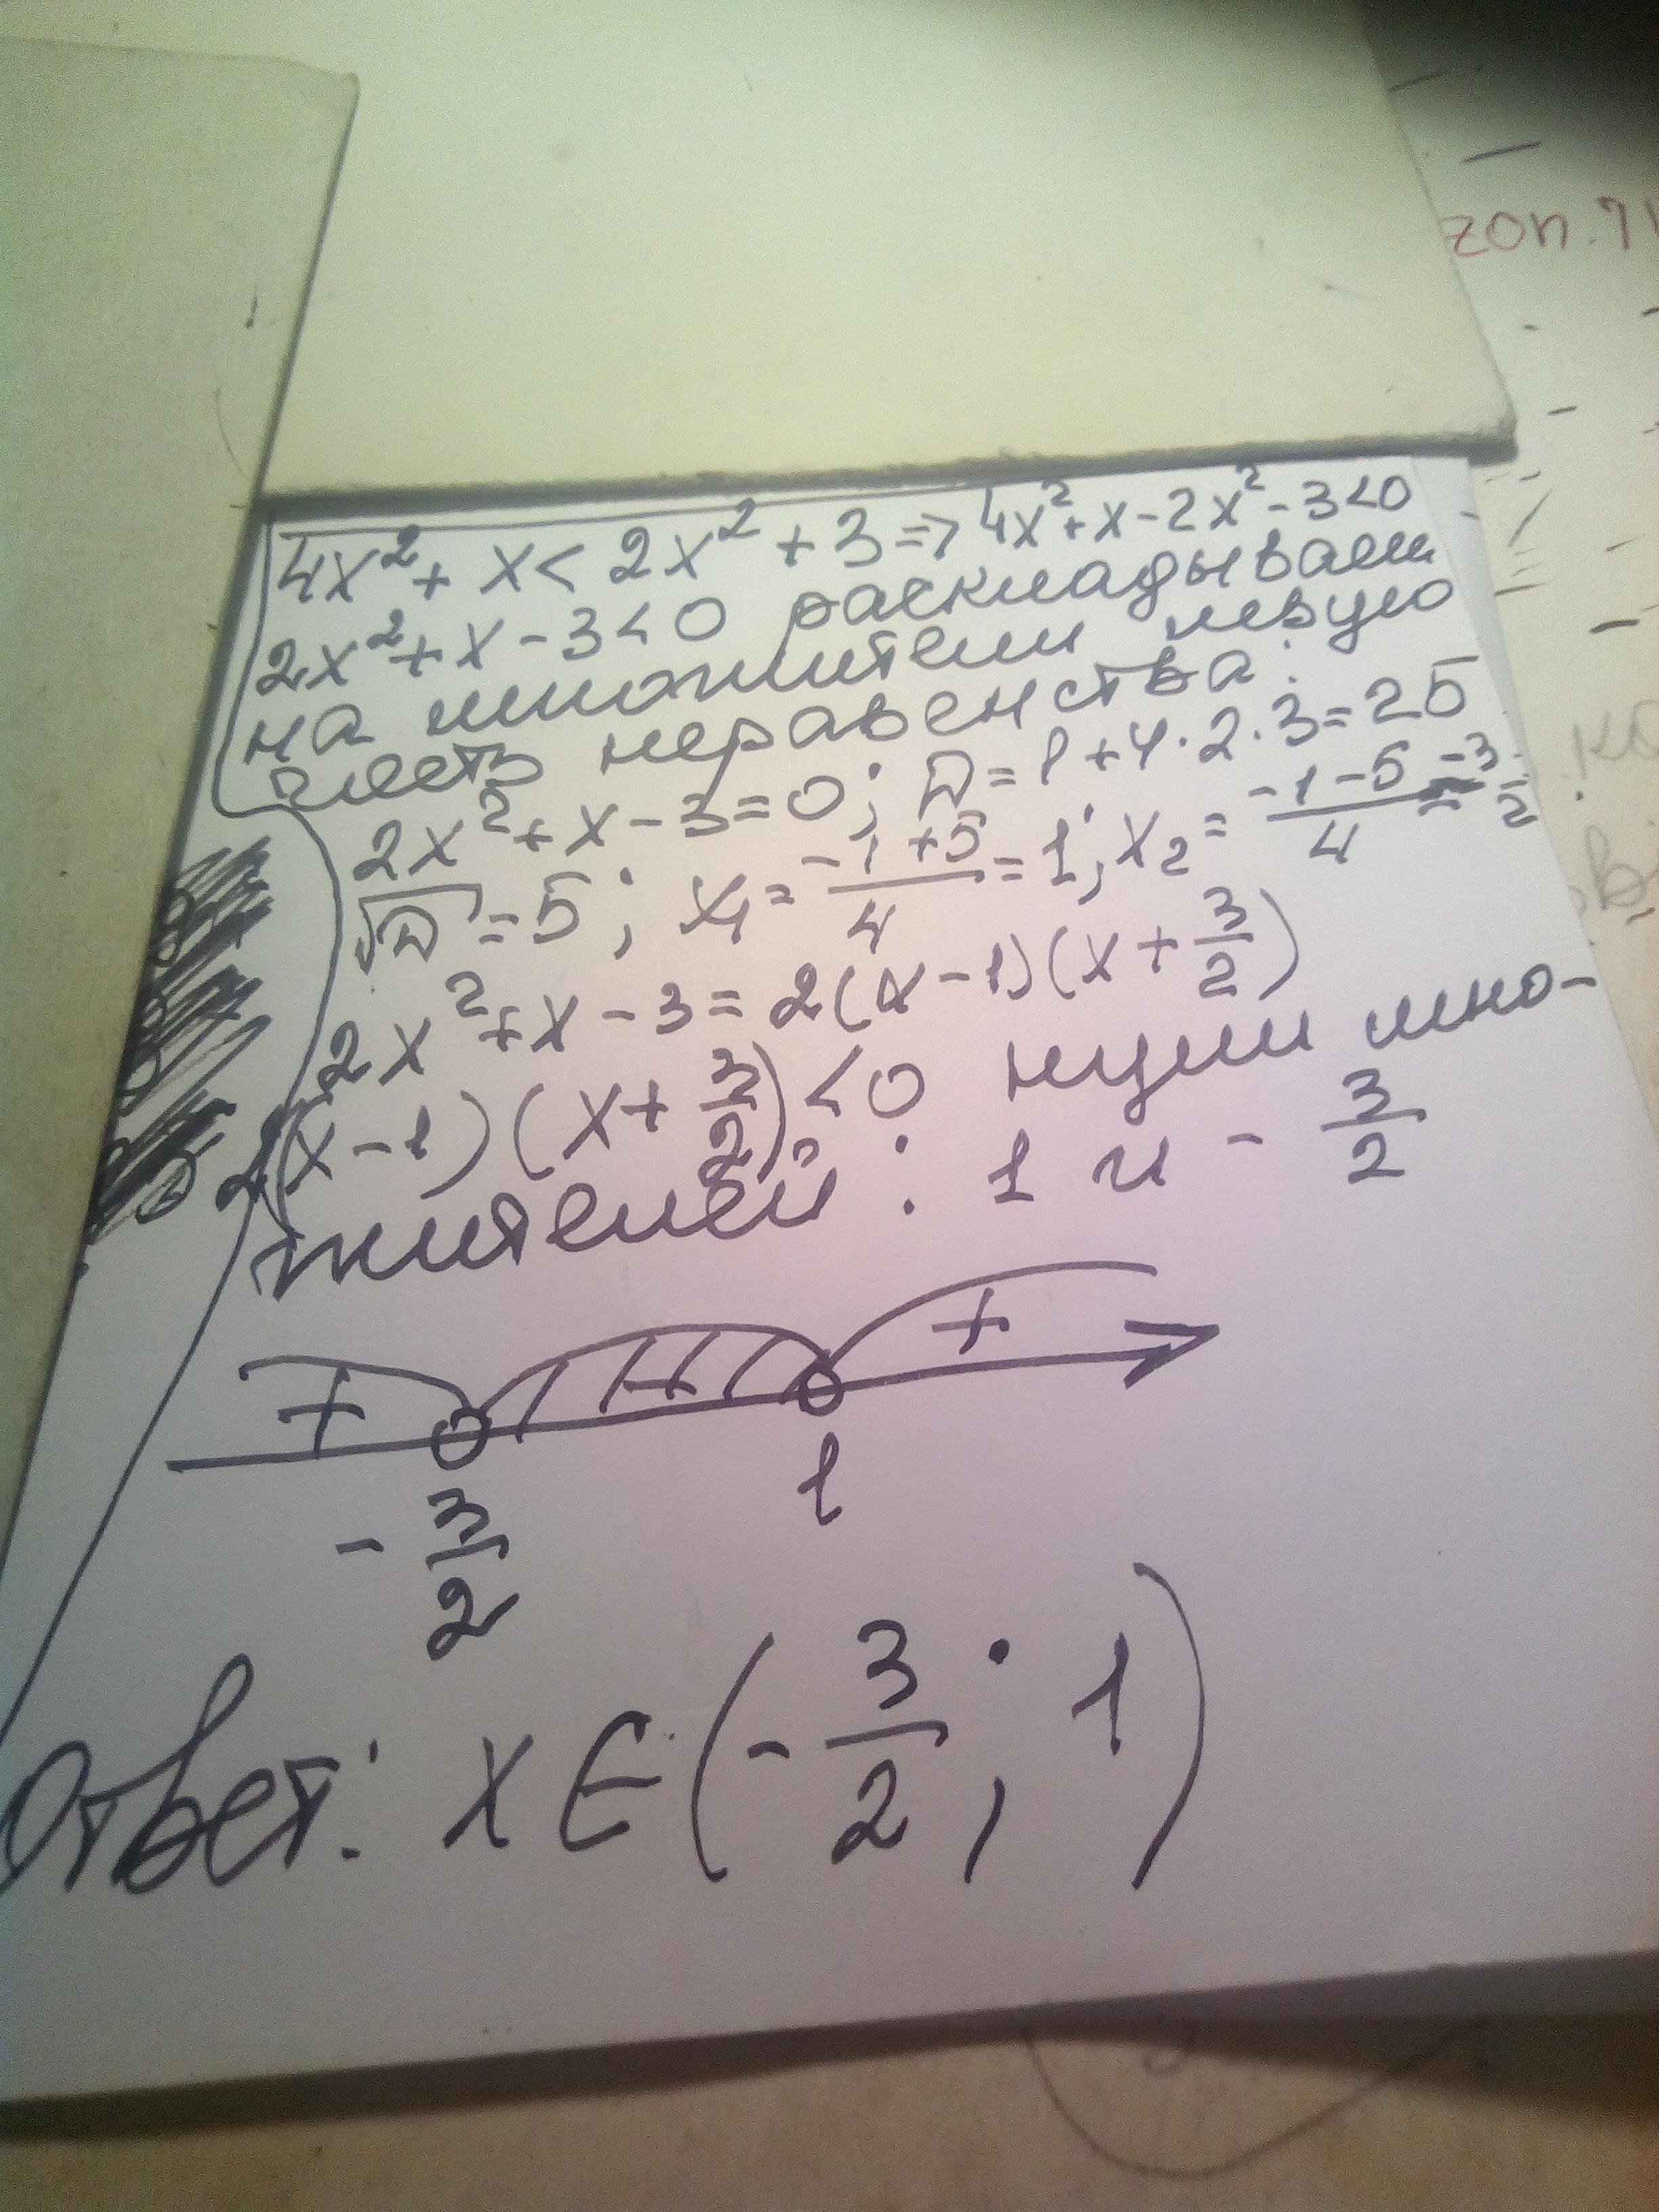 4x² + x < 2x² + 3 => 4x² + x - 2x² - 3 < 0
2x² + x - 3 < 0 раскладываем
на множители левую
часть неравенства:
2x² + x - 3 = 0; D = 1 + 4·2·3 = 25
√D = 5; x₁ = (-1 + 5)/4 = 1; x₂ = (-1 - 5)/4 = -3/2
2x² + x - 3 = 2(x - 1)(x + 3/2)
2(x - 1)(x + 3/2) < 0 нули мно-
жителей: 1 и - 3/2
+ - +
- 3/2 1
Ответ: x ∈ (- 3/2; 1)
zon.71